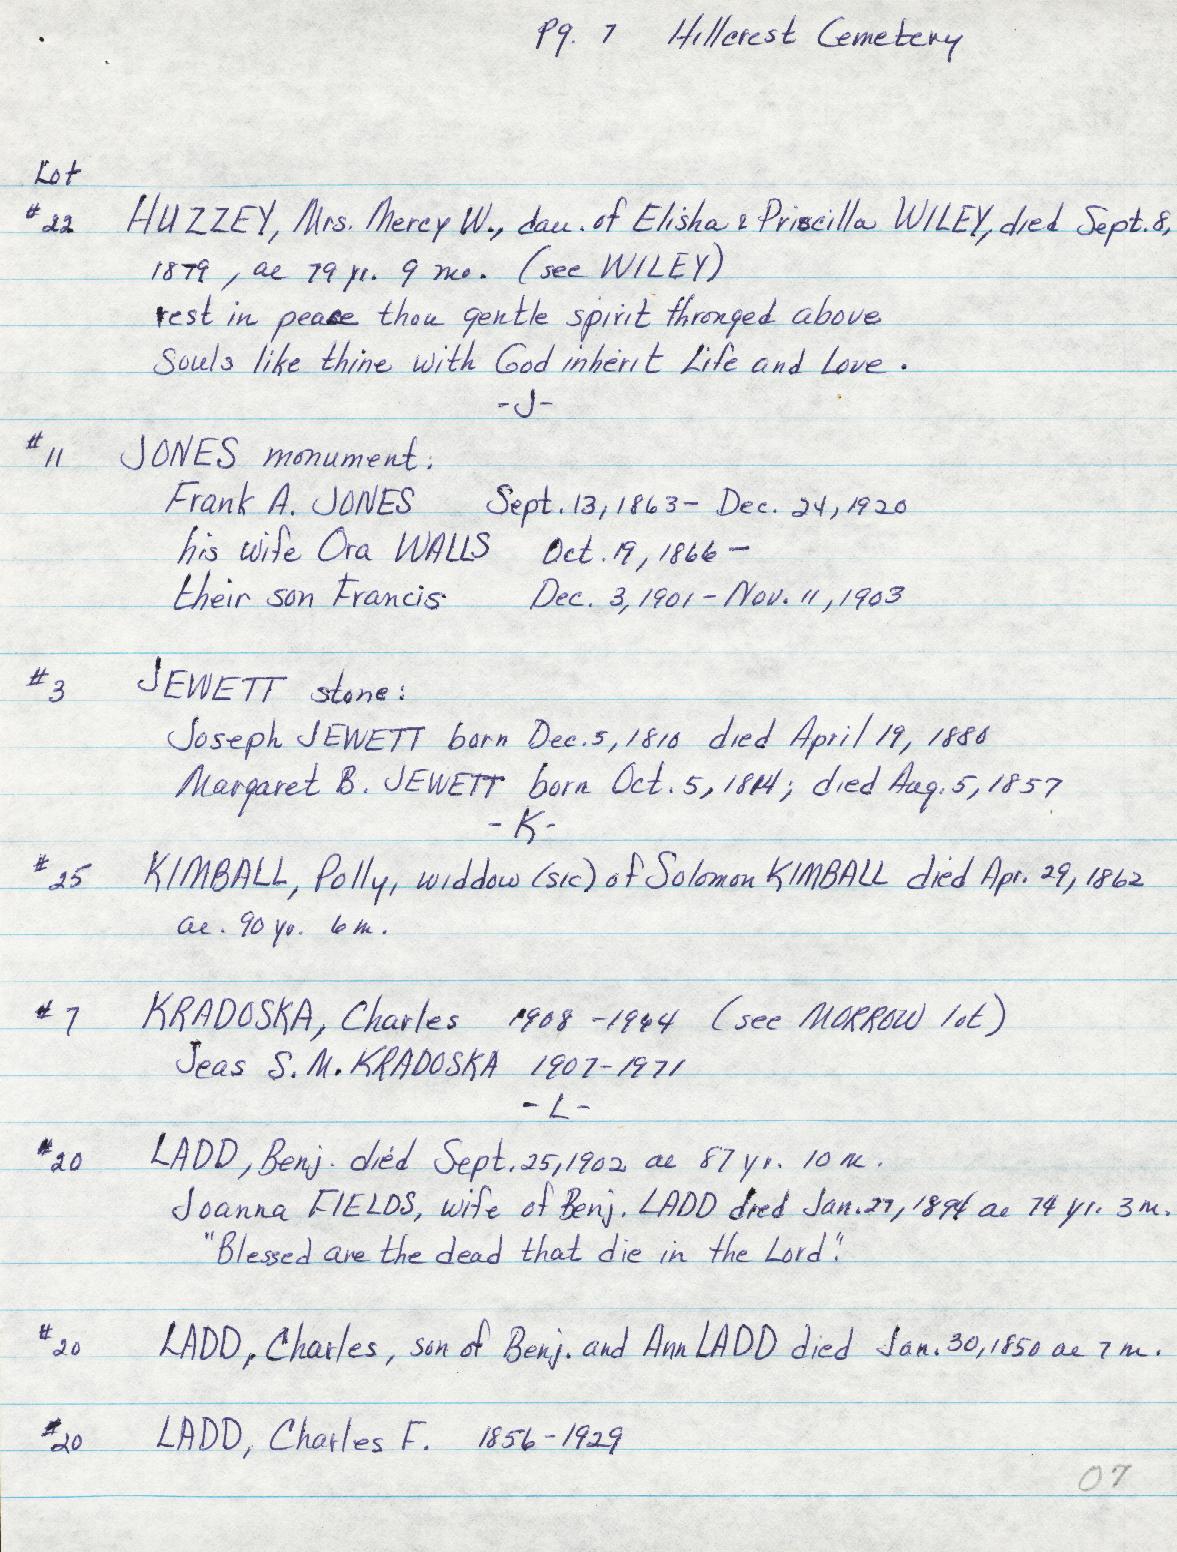 Pg. 7 Hillcrest Cemetery
Lot
#22 HUZZEY, Mrs. Mercy W., dau. of Elisha & Priscilla WILEY, died Sept. 8,
1879, ae 79 yr. 9 mo. (see WILEY)
rest in peace thou gentle spirit thronged above
Souls like thine with God inherit Life and Love.
-J-
#11 JONES monument:
Frank A. JONES Sept. 13, 1863- Dec. 24, 1920
his wife Ora WALLS Oct. 19, 1866-
their son Francis Dec. 3, 1901-Nov. 11, 1903
#3 JEWETT stone:
Joseph JEWETT born Dec. 5, 1810 died April 19, 1880
Margaret B. JEWETT born Oct. 5, 1814; died Aug. 5, 1857
-K-
#25 KIMBALL, Polly, widdow (sic) of Solomon KIMBALL died Apr. 29, 1862
ae. 90 yr. 6 m.
#7 KRADOSKA, Charles 1908-1964 (see MORROW lot)
Jeas S. M. KRADOSKA 1907-1971
-L-
#20 LADD, Benj. died Sept. 25, 1902 ae 87 yr. 10 m.
Joanna FIELDS, wife of Benj. LADD died Jan. 27, 1894 ae 74 yr. 3 m.
"Blessed are the dead that die in the Lord."
#20 LADD, Charles, son of Benj. and Ann LADD died Jan. 30, 1850 ae 7 m.
#20 LADD, Charles F. 1856-1929
07